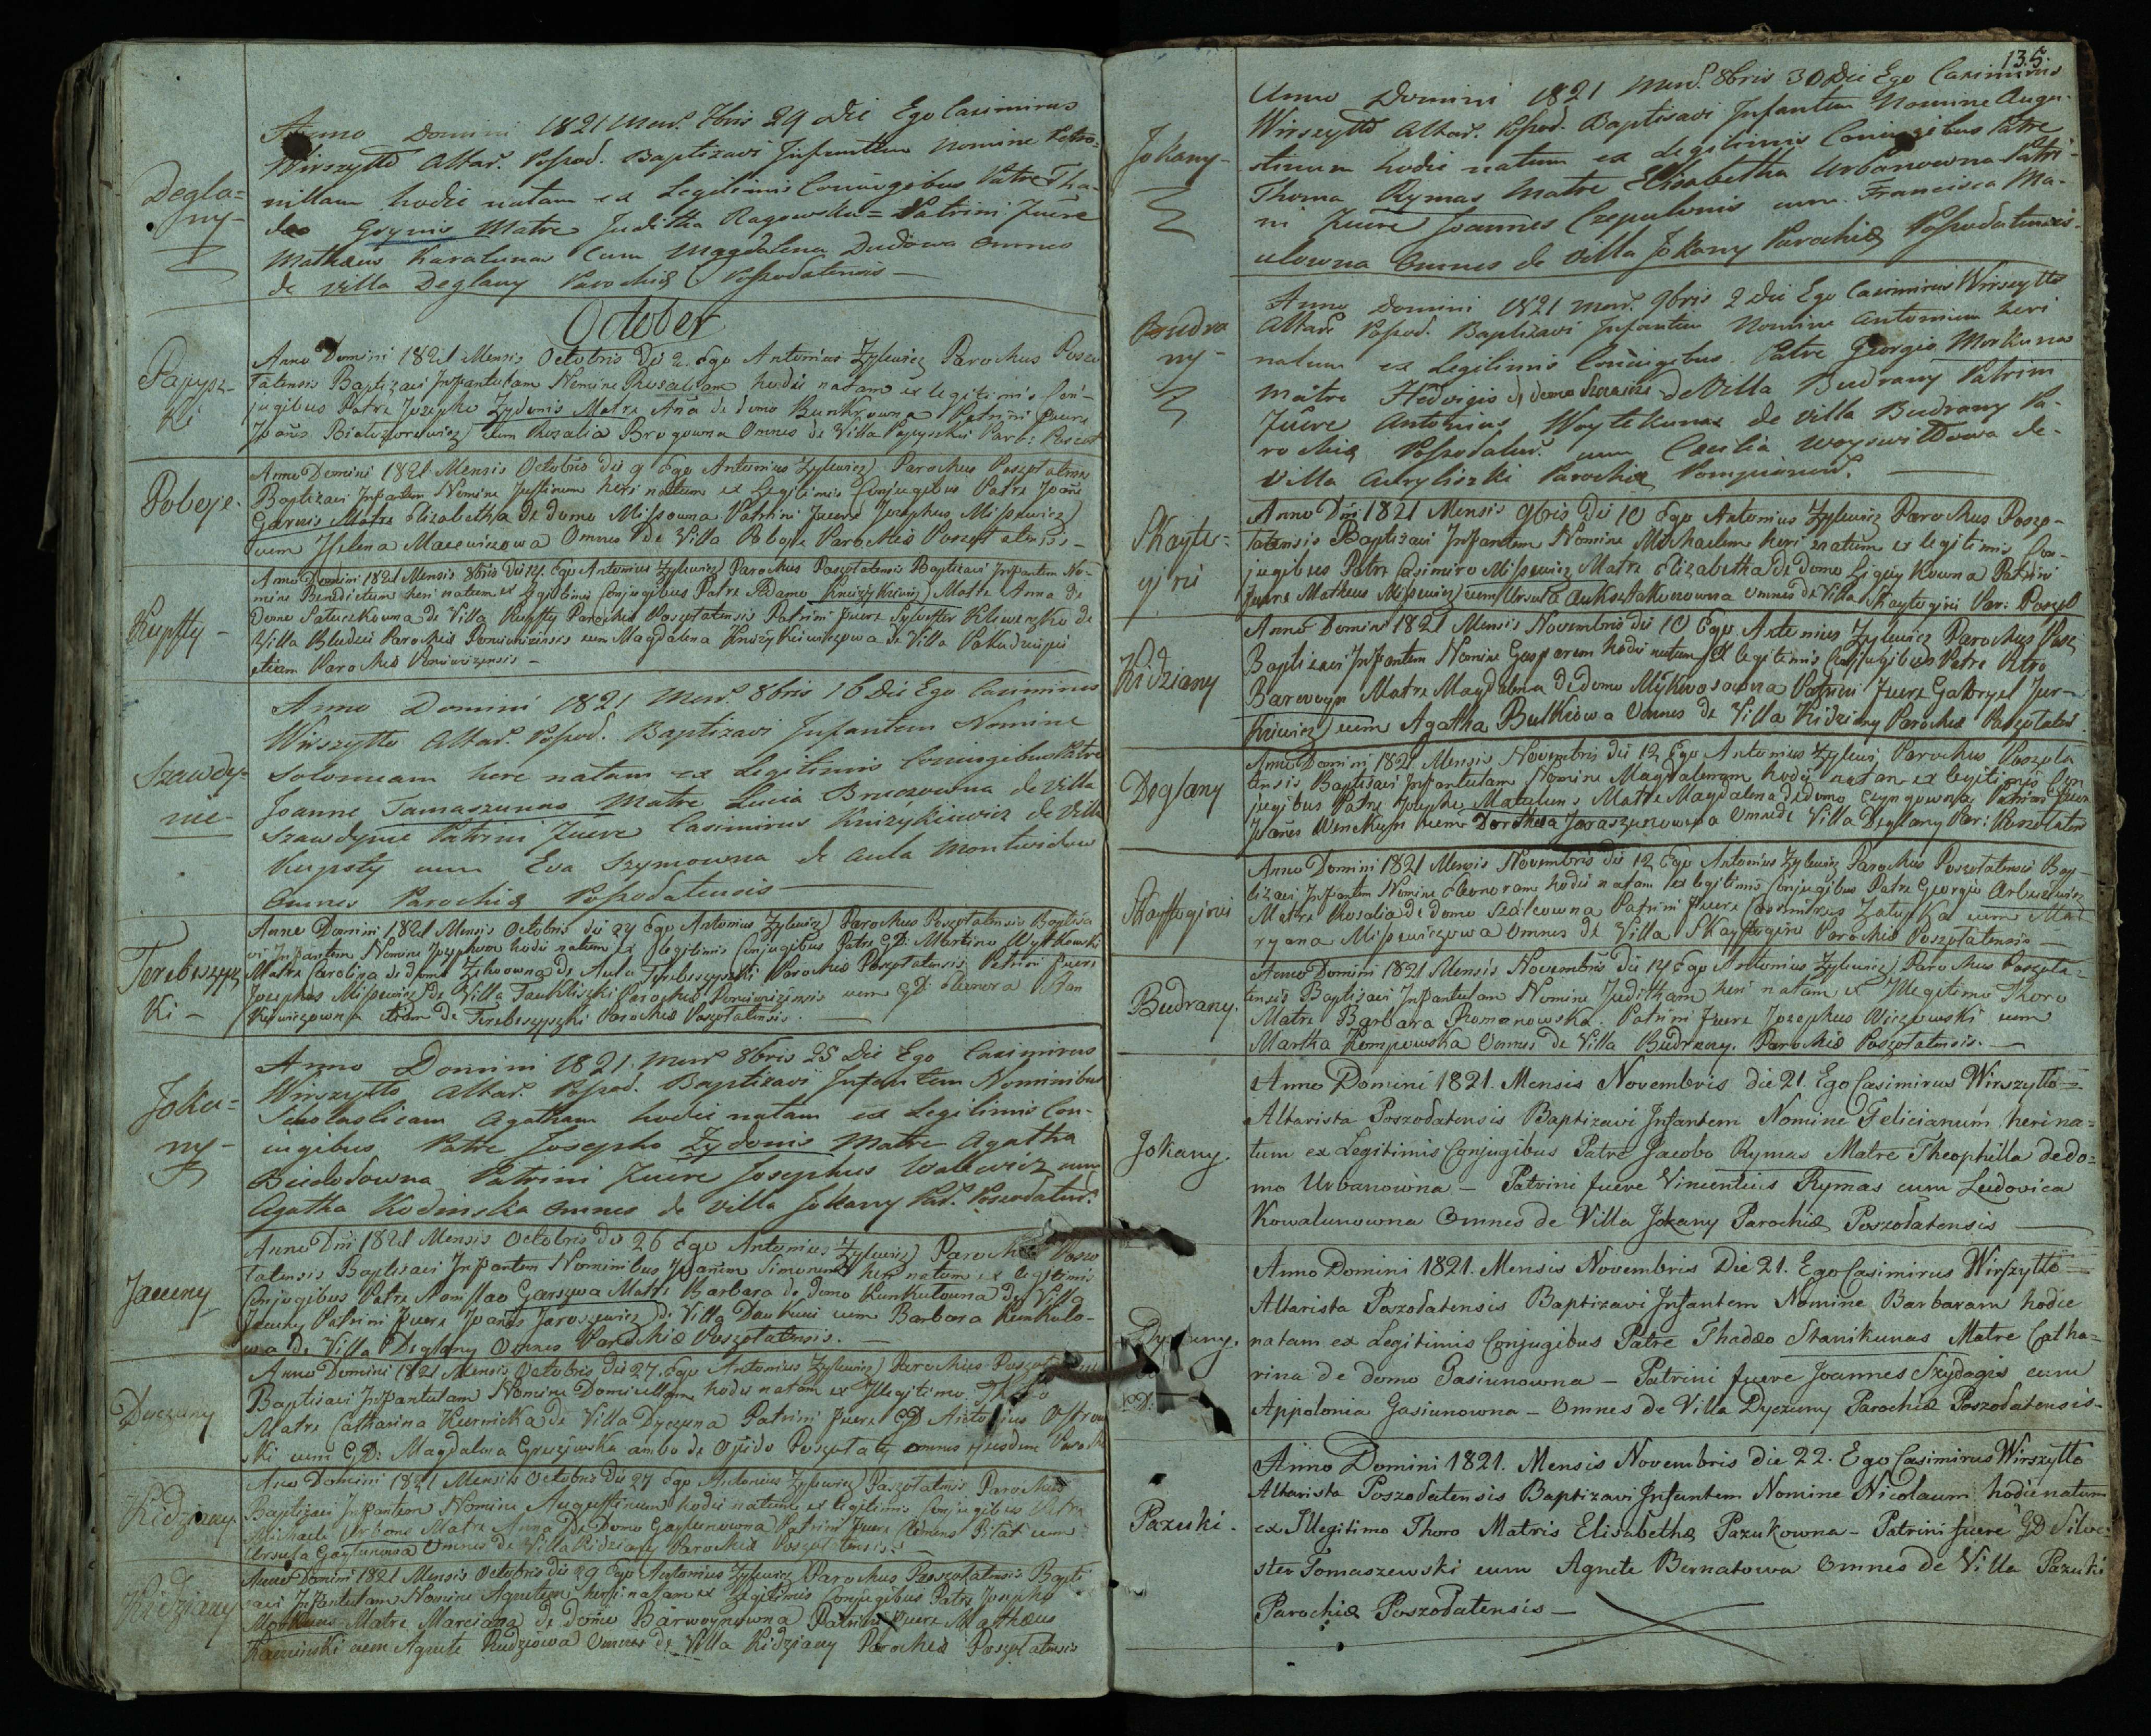 Degla=
ny-
Anno Domini 1821 Mens. 7bris 29 Die Ego Casimirus
Wirszyłło Altar. Poszod. Baptizavi Infantem Nomine Petro=
nillam hodie natam ex Legitimis Coniugibus Patre Tha-
deo Grynis Matre Juditha Ragowska= Patrini Fuere
Matheus Karaluna cum Magdalena Dudowa Omnes
de Villa Deglany Parochiæ Poszodatensis—
October
Papysz-
ki
Anno Domini 1821 Mensis Octobris die 2. Ego Antonius Zylewicz Parochus Poszo
łatensis Baptizavi Infantulam Nomine Rosaliam hodie natam ex legitimis Con-
jugibus Patre Josepho Zydonis Matre Anna de domo Bunkowna Patrini fuere
Joañs Białozorewicz cum Rosalia Brogowna Omnes de Villa Papyszki Par:
Poboje.
Anno Domini 1821 Mensis Octobris die 9 Ego Antonius Zylewicz Parochus Poszołatensis
Baptizavi Infantem Nomine Justinum heri natum ex Legitimis Conjugibus Patre Joañe
Garnis Matre Elizabetha de domo Missowna Patrini fuere Josephus Missewicz
cum Helena Macewiczowa Omnes de Villa Poboje Parochiæ Poszołatensis—
Kupsty-
Anno Domini 1821 Mensis 8bris die 14. Ego Antonius Zylewicz Parochus Poszołatensis Baptizavi Infantem No-
mine Benedictum heri natum ex Legitimis Conjugibus Patre Adamo Matre Anna de
Domo de Villa Kupsty Parochiæ Poszołatensis Patrini fuere Sylvester de
Villa Parochiæ cum Magdalena de Villa
etiam Parochiæ -
Szawdy-
nie-
Anno Domini 1821 Mens. 8bris 16 Die Ego Casimirus
Wirszyłło Altar. Poszod. Baptizavi Infantem Nomine
Solomeam here natam ex Legitimis Coniugibus Patre
Joanne Tamaszunas Matre Lucia de Villa
Szawdynie Patrini Fuere Casimirus Knizykiewicz de Villa
Kupsty cum Eva Szymowna de Aula Montwidow
Omnes Parochiæ Poszodatensis—
Terebeszysz
ki-
Anno Domini 1821 Mensis Octobris die 24 Ego Antonius Zylewicz Parochus Poszołatensis Baptiza
vi Infantem Nomine Josephum hodie natum ex legitimis Conjugibus Patre GD: Martino
Matre Carolina de domo de Aula Parochiæ Poszołatensis Patrini fuere
Josephus Missewicz de Villa Parochiæ cum GD: Eleonora
etiam de Terebeszyszki Parochiæ Poszołatensis.
Joka=
ny-
Anno Domini 1821. Mens. 8bris 25 Die Ego Casimirus
Wirszyłło Altar. Poszod. Baptizavi Infantem Nominibus
Scholasticam Agatham hodie natam ex Legitimis Con-
iugibus Patre Josepho Zydonis Matre Agatha
Patrini Fuere Josephus cum
Agatha Kodinska Omnes de Villa Jokany Par. Poszodatens.
Jacuny
Anno Dñi 1821 Mensis Octobris die 26 Ego Antonius Zylewicz Parochus Poszo
łatensis Baptizavi Infantem Nominibus Joañem Simonem heri natum ex legitimis
Conjugibus Patre Stanislao Garszwa Matre Barbara de domo Runkulowna de Villa
Jacuny Patrini fuere Joañs Jaroszewicz de Villa cum Barbara
wa de Villa Deglany Omnes Parochiæ Poszołatensis.—
Dyczuny
Anno Domini 1821 Mensis Octobris die 27. Ego Antonius Zylewicz Parochus
Baptizavi Infantulam Nomine Domicellam hodie natam ex Illegitimo Thoro
Matre Catharina Kurnicka de Villa Dyczuna Patrini fuere GD Antonius
ski cum GD: Magdalena ambo de Oppido omnes ejusdem
Kidziany
Anno Domini 1821 Mensis Octobris die 27 Ego Antonius Zylewicz Poszołatensis Parochus
Baptizavi Infantem Nomine Augustinum hodie natum ex legitimis Conjugibus Patre
Michaele Urbone Matre Anna de Domo Gaylunowna Patrini fuere cum
Ursula Gaylunowa Omnes de Villa Kidziany Parochiæ
Kidziany
Anno Domini 1821 Mensis Octobris die 29 Ego Antonius Zylewicz Parochus Poszołatensis Bapti
zavi Infantulam Nomine Agnetem heri natam ex Legitimis Conjugibus Patre Josepho
Morkunas Matre Marciana de domo Barwoynowna Patrini fuere Matheus
Kaminski cum Agnete Rudziowa Omnes de Villa Kidziany Parochiæ Poszołatensis
135.
Jokany-
Anno Domini 1821 Mens. 8bris 30 Die Ego Casimirus
Wirszyłło Altar. Poszod. Baptisavi Infantem Nomine Augu-
stinum hodie natum ex Legitimis Coniugibus Patre
Thoma Rymas Matre Elisabetha Urbanowna Patri-
ni Fuere Joannes Czepulonis cum Francisca Ma-
ulowna Omnes de Villa Jokany Parochiæ Poszodatensis.
Budra
ny-
Anno Domini 1821 Mens. 9bris 2 Die Ego Casimirus Wirszyłło
Altar. Poszod. Baptizavi Infantem Nomine Antonium heri
natum ex Legitimis Coniugibus Patre Georgio Morkunas
Matre Hedvigis de domo de Villa Budrany Patrini
Fuere Antonius Woytekunas de Villa Budrany Pa-
rochiæ Poszodatens. cum Cecilia Woyswiłłowa de
Villa Auryliszki Parochiæ
Skayste-
giri
Anno Dñi 1821 Mensis 9bris die 10 Ego Antonius Zylewicz Parochus Poszo-
łatensis Baptizavi Infantem Nomine Michaelem heri natum ex legitimis Con-
jugibus Patre Casimiro Missewicz Matre Elizabetha de Domo Patrini
fuere Matheus Missewicz cum Ursula Omnes de Villa Skaystogiri Par: Poszoł
Kidziany
Anno Domini 1821 Mensis Novembris die 10 Ego Antonius Zylewicz Parochus Posz
Baptizavi Infantem Nomine Gasparem hodie natum ex legitimis Conjugibus Patre Petro
Barwoyn Matre Magdalena de Domo Patrini fuere Gabryel Jur-
kiewicz cum Agatha Butkiowa Omnes de Villa Kidziany Parochiæ Poszołaten
Deglany
Anno Domini 1821 Mensis Novembris die 12 Ego Antonius Zylewicz Parochus Poszoła
tensis Baptizavi Infantulam Nomine Magdalenam hodie natam ex legitimis Con
jugibus Patre Josepho Matre Magdalena de domo Patrini fuere
Joañes cum Dorothea Jaraszunowna Omnes de Villa Deglany Par:
Skaystogirii
Anno Domini 1821 Mensis Novembris die 12 Ego Antonius Zylewicz Parochus Poszołatensis Bap-
tizavi Infantem Nomine Eleonoram hodie natam ex legitimis Conjugibus Patre Georgio
Matre Rosalia de domo Patrini fuere Casimirus Zatyska cum Ma
ryana Missewiczowa Omnes de Villa Skaystogirii Parochiæ Poszołatensis—
Budrany.
Anno Domini 1821 Mensis Novembris die 14 Ego Antonius Zylewicz Parochus Poszoła-
tensis Baptizavi Infantulam Nomine Juditham heri natam ex Illegitimo Thoro
Matre Barbara Romanowska. Patrini fuere Josephus cum
Martha Kompowska Omnes de Villa Budrany. Parochiæ Poszołatensis.—
Jokany.
Anno Domini 1821. Mensis Novembris die 21. Ego Casimirus Wirszyłło=
Altarista Poszodatensis Baptizavi Infantem Nomine Felicianum heri na=
tum ex Legitimis Conjugibus Patre Jacobo Rymas Matre Theophilla de do=
mo Urbanowna — Patrini fuere Vincentius Rymas cum Ludovica
Kowalunowna Omnes de Villa Jokany Parochiæ Poszodatensis
Anno Domini 1821. Mensis Novembris Die 21. Ego Casimirus Wirszyłło=
Altarista Poszodatensis Baptizavi Infantem Nomine Barbaram hodie
natam ex Legitimis Conjugibus Patre Thadæo Stanikunas Matre Catha=
rina de domo Gasiunowna — Patrini fuere Joannes Szydagis cum
Appolonia Gasiunowna — Omnes de Villa Dyczuny Parochiæ Poszodatensis-
Pazuki.
Anno Domini 1821. Mensis Novembris die 22. Ego Casimirus Wirszyłło
Altarista Poszodatensis Baptizavi Infantem Nomine Nicolaum hodie natum
ex Illegitimo Thoro Matris Elisabethæ Pazukowna — Patrini fuere GD Silve:
ster Tomaszewski cum Agnete Bernatowa Omnes de Villa Pazuki
Parochiæ Poszodatensis—